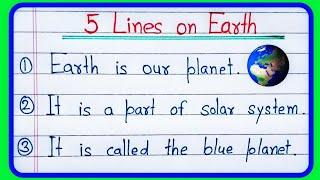 5 Lines on Earth
① Earth is our planet.
② It is a part of solar system.
③ It is called the blue planet.